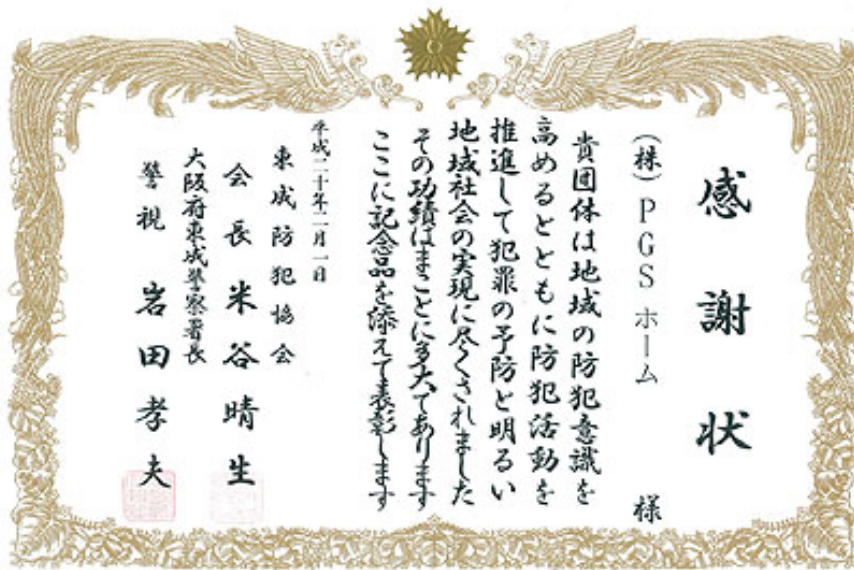 感謝状
(株)PGSホーム 様
貴団体は地域の防犯意識を
高めるとともに防犯活動を
推進して犯罪の予防と明るい
地域社会の実現に尽くされました
その功績はまことに多大であります
ここに記念品を添えて表彰します
平成二十年二月一日
東成防犯協会
会長 米谷晴生
大阪府東成警察署長
警視 岩田孝夫